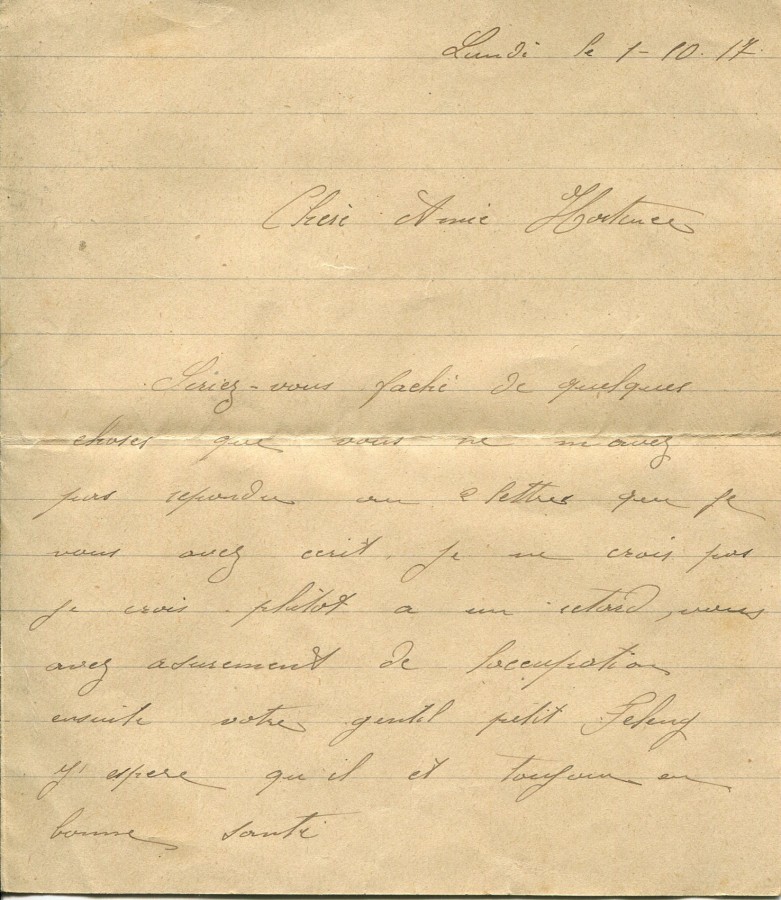 Lundi le 1-10-17.
Chere Amie Hortence
Seriez-vous faché de quelques
choses que vous ne m'avez
pas repondu au 2 lettres que je
vous avez ecrit. je ne crois pas
je crois plûtot a un retard, vous
avez asurement de l'occupation
ensuite votre gentil petit
j'espere qu'il et toujour en
bonne santé